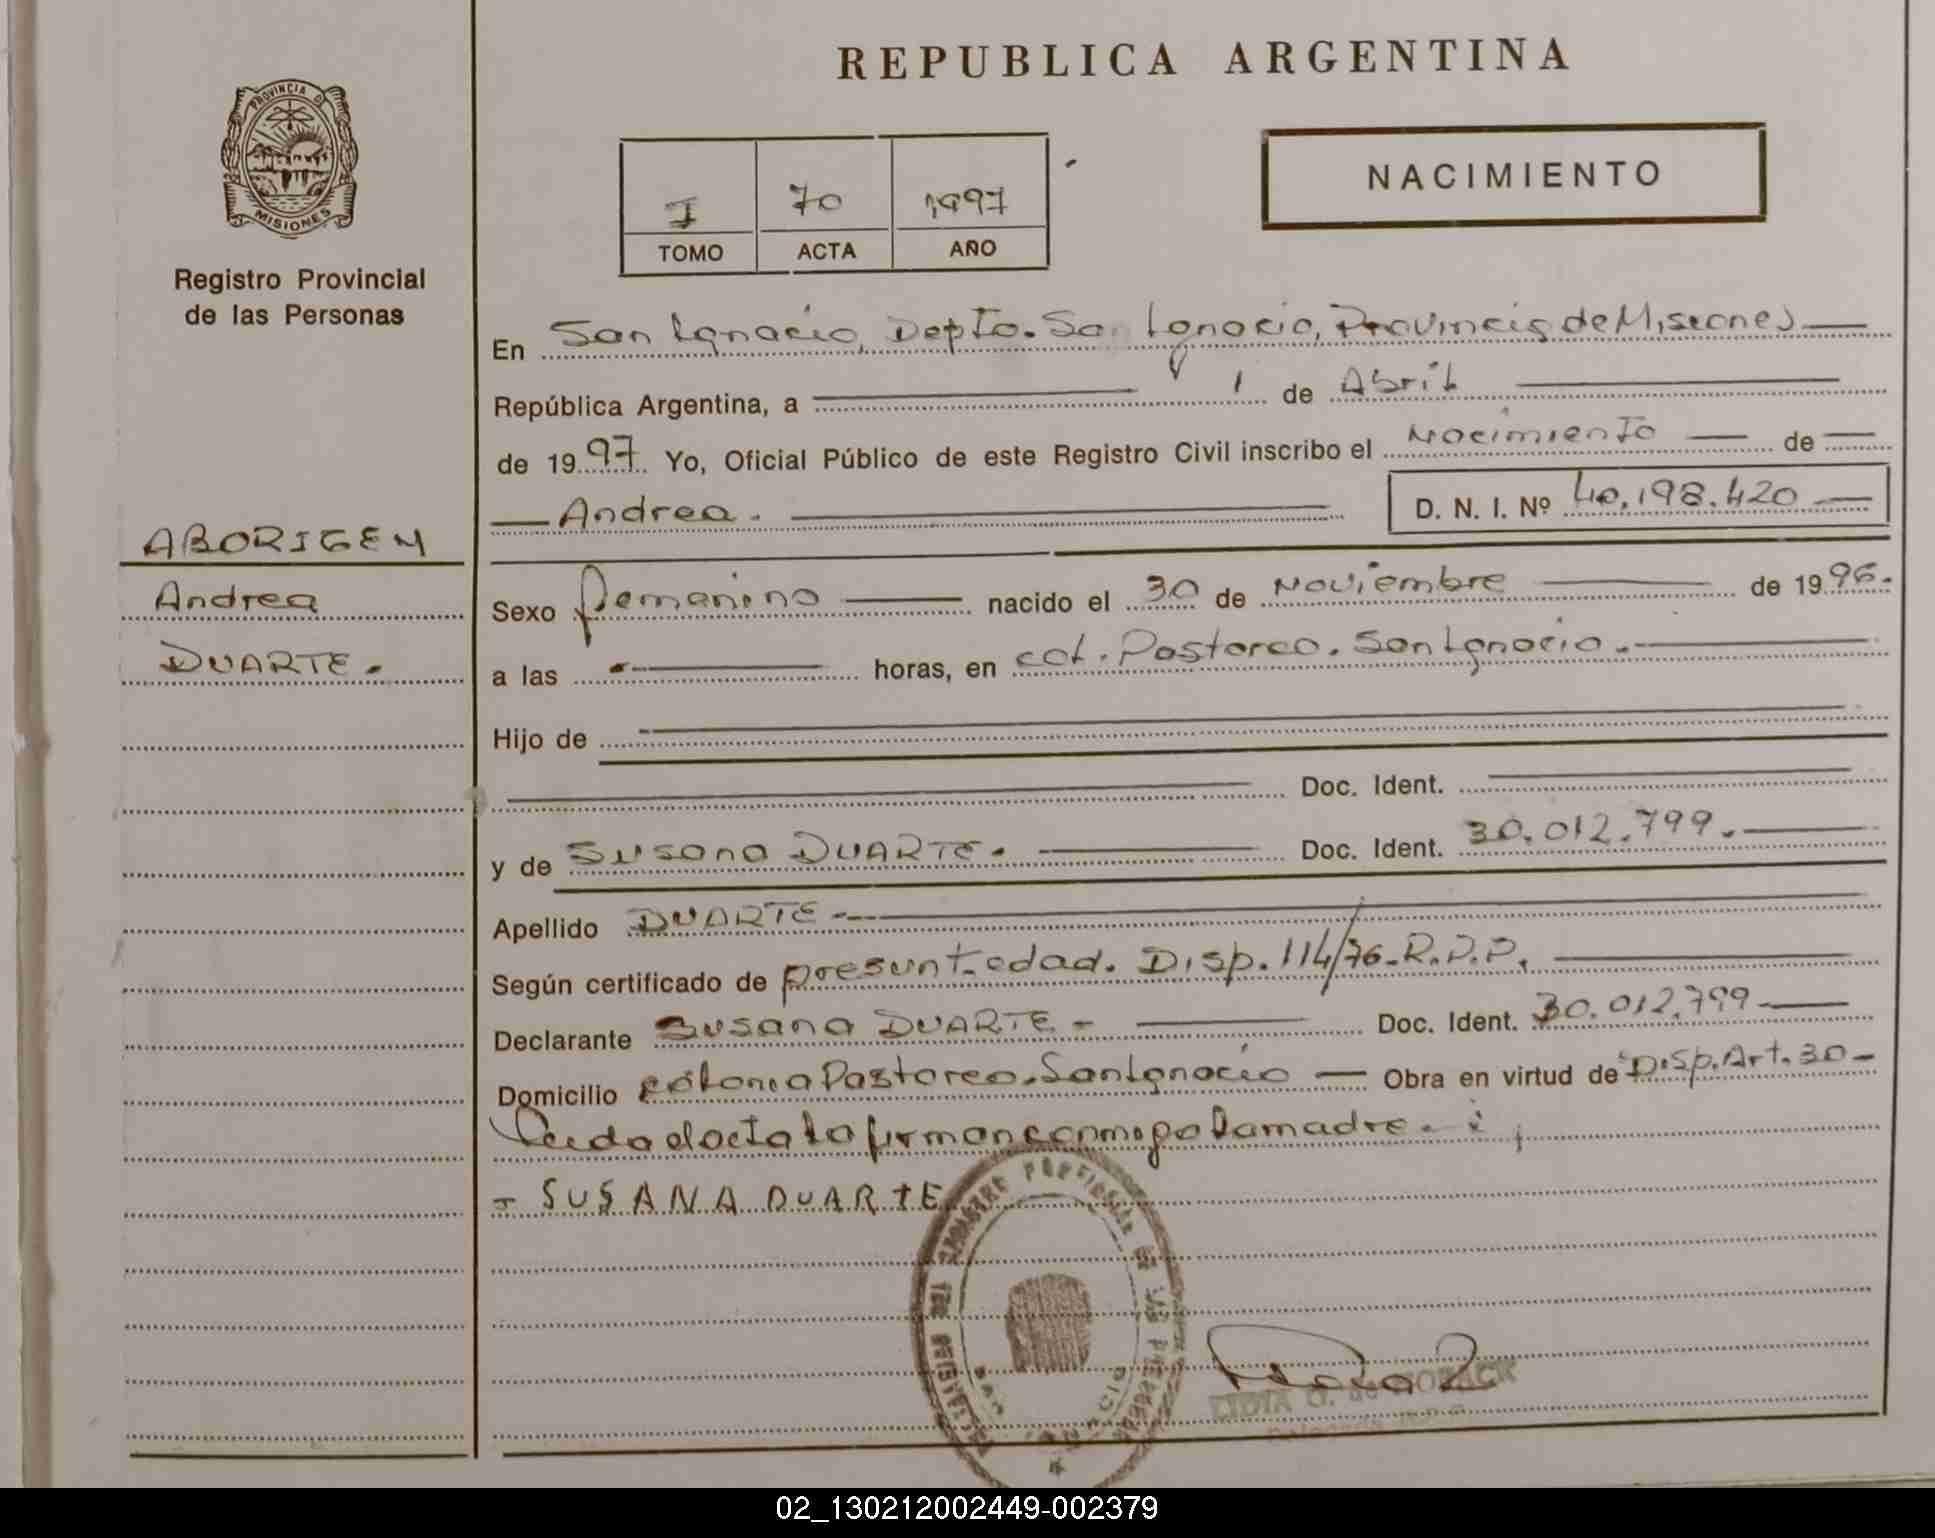 REPUBLICA ARGENTINA
PROVINCIA D
MISIONES
Registro Provincial
de las Personas
NACIMIENTO
I 70 1997
TOMO ACTA AÑO
En San Ignacio, Depto. San Ignacio, Provincia de Misiones
República Argentina, a 1 de Abril
de 1997 Yo, Oficial Público de este Registro Civil inscribo el Nacimiento de
Andrea. D. N. I. Nº 40.198.420
ABORIGEN
Andrea
DUARTE.
Sexo femenino nacido el 30 de Noviembre de 1996.
a las horas, en col. Pastoreo. San Ignacio.
Hijo de
Doc. Ident.
y de Susana DUARTE. Doc. Ident. 30.012.799.
Apellido DUARTE
Según certificado de presunt. edad. Disp. 114/76. R.P.P.
Declarante Susana DUARTE - Doc. Ident. 30.012.799
Domicilio colonia Pastoreo. San Ignacio Obra en virtud de Disp. Art. 30
Leida el acta la firman conmigo la madre.
- SUSANA DUARTE
LIDIA G. de
02_130212002449-002379